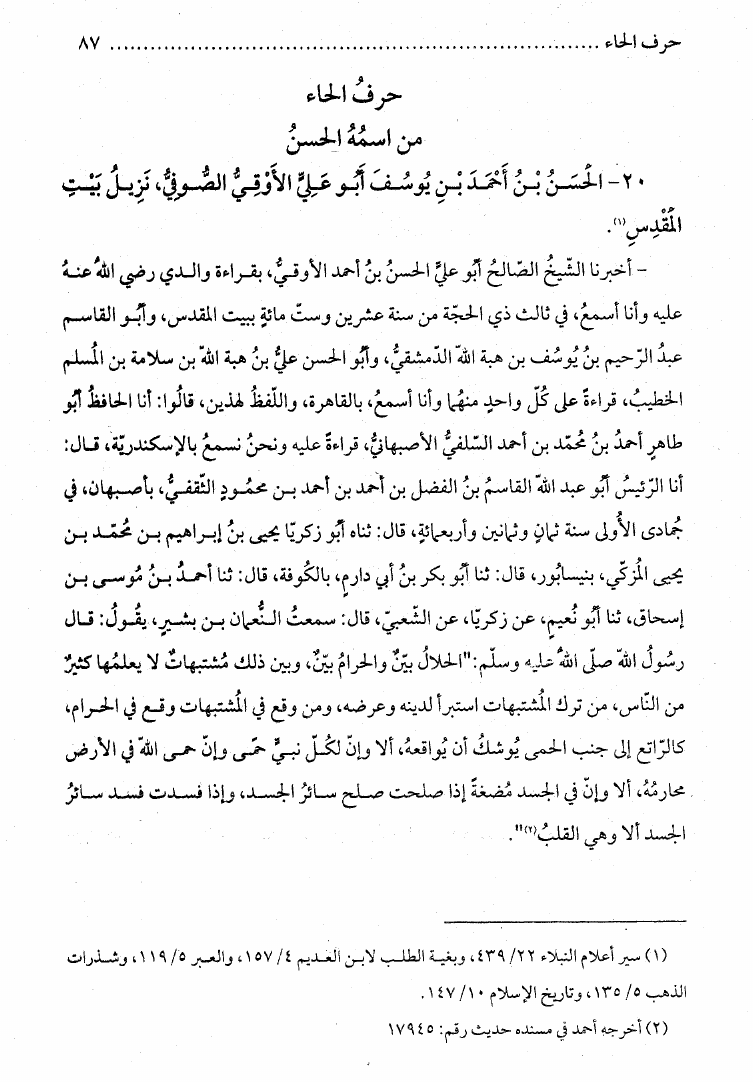 حرف الحاء ........................................................................ ٨٧
حرفُ الحاء
من اسمُهُ الحسنُ
٢٠- الحَسَنُ بْنُ أَحْمَدَ بْنِ يُوسُفَ أَبُو عَلِيٍّ الأَوْقِيُّ الصُّوفِيُّ، نَزِيلُ بَيْتِ
المُقْدِسِ(١).
- أخبرنا الشّيخُ الصّالحُ أبُو عليٍّ الحسنُ بنُ أحمد الأوقيُّ، بقراءة والدي رضي اللهُ عنهُ
عليه وأنا أسمعُ، في ثالث ذي الحجّة من سنة عشرين وستّ مائةٍ ببيت المقدس، وأبُو القاسم
عبدُ الرّحيم بنُ يُوسُف بن هبة اللهّ الدّمشقيُّ، وأبُو الحسن عليُّ بنُ هبة اللهّ بن سلامة بن المُسلم
الخطيبُ، قراءةً على كُلّ واحدٍ منهُما وأنا أسمعُ، بالقاهرة، واللّفظُ لهذين، قالُوا: أنا الحافظُ أبُو
طاهرٍ أحمدُ بنُ مُحمّد بن أحمد السّلفيُّ الأصبهانيُّ، قراءةً عليه ونحنُ نسمعُ بالإسكندريّة، قال:
أنا الرّئيسُ أبُو عبد اللهّ القاسمُ بنُ الفضل بن أحمد بن أحمد بن محمُودٍ الثّقفيُّ، بأصبهان، في
جُمادى الأُولى سنة ثمانٍ وثمانين وأربعمائةٍ، قال: ثناه أبُو زكريّا يحيى بنُ إبراهيم بن مُحمّد بن
يحيى المُزكّي، بنيسابُور، قال: ثنا أبُو بكر بنُ أبي دارمٍ، بالكُوفة، قال: ثنا أحمدُ بنُ مُوسى بن
إسحاق، ثنا أبُو نُعيمٍ، عن زكريّا، عن الشّعبيّ، قال: سمعتُ النُّعمان بن بشيرٍ، يقُولُ: قال
رسُولُ اللهّ صلّى اللهُ عليه وسلّم:"الحلالُ بيّنٌ والحرامُ بيّنٌ، وبين ذلك مُشتبهاتٌ لا يعلمُها كثيرٌ
من النّاس، من ترك المُشتبهات استبرأ لدينه وعرضه، ومن وقع في المُشتبهات وقع في الحرام،
كالرّاتع إلى جنب الحمى يُوشكُ أن يُواقعهُ، ألا وإنّ لكُلّ نبيٍّ حمًى وإنّ حمى اللهّ في الأرض
محارمُهُ، ألا وإنّ في الجسد مُضغةً إذا صلحت صلح سائرُ الجسد، وإذا فسدت فسد سائرُ
الجسد ألا وهي القلبُ(٢)".
(١) سير أعلام النبلاء ٢٢/ ٤٣٩، وبغية الطلب لابن العديم ٤/ ١٥٧، والعبر ٥/ ١١٩، وشذرات
الذهب ٥/ ١٣٥، وتاريخ الإسلام ١٠/ ١٤٧.
(٢) أخرجه أحمد في مسنده حديث رقم: ١٧٩٤٥